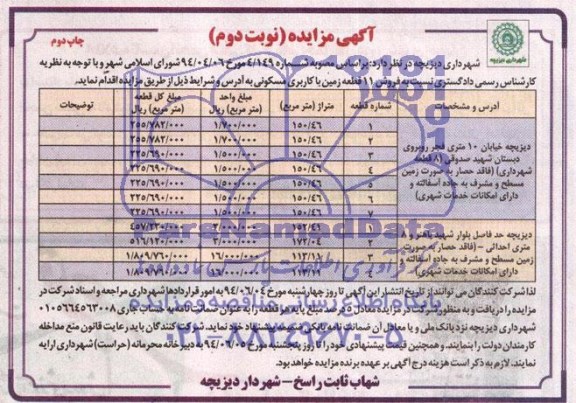 آگهی مزایده (نوبت دوم)
چاپ دوم
شهرداری دیزیچه
شهرداری دیزیچه در نظر دارد: براساس مصوبه شماره ۴/۱۴۹ مورخ ۹۴/۰۴/۰۶ شورای اسلامی شهر و با توجه به نظریه
کارشناس رسمی دادگستری نسبت به فروش ۱۱ قطعه زمین با کاربری مسکونی به آدرس و شرایط ذیل از طریق مزایده اقدام نماید.
آدرس و مشخصات شماره قطعه متراژ (متر مربع) مبلغ واحد (متر مربع) ریال مبلغ کل قطعه (متر مربع) ریال توضیحات
۱ ۱۵۰/۴۶ ۱/۷۰۰/۰۰۰ ۲۵۵/۷۸۲/۰۰۰
دیزیچه خیابان ۱۰ متری فجر روبروی ۲ ۱۵۰/۴۶ ۱/۷۰۰/۰۰۰ ۲۵۵/۷۸۲/۰۰۰
دبستان شهید صدوقی ۸۱ قطعه ۳ ۱۵۰/۴۶ ۱/۵۰۰/۰۰۰ ۲۲۵/۶۹۰/۰۰۰
شهرداری) (فاقد حصار به صورت زمین ۴ ۱۵۰/۴۶ ۱/۵۰۰/۰۰۰ ۲۲۵/۶۹۰/۰۰۰
مسطح و مشرف به جاده آسفالته و ۵ ۱۵۰/۴۶ ۱/۵۰۰/۰۰۰ ۲۲۵/۶۹۰/۰۰۰
دارای امکانات خدمات شهری) ۶ ۱۵۰/۴۶ ۱/۵۰۰/۰۰۰ ۲۲۵/۶۹۰/۰۰۰
۷ ۱۵۰/۴۶ ۲۲۵/۶۹۰/۰۰۰
دیزیچه حد فاصل بلوار شهید باهنر و ۱۸ ۱
متری احداثی - (فاقد حصار به صورت ۲ ۱۷۲/۰۴ ۳/۰۰۰/۰۰۰ ۵۱۶/۱۲۰/۰۰۰
زمین مسطح و مشرف به جاده آسفالته و ۳ ۱۱۳/۱۱ ۱۶/۰۰۰/۰۰۰ ۱/۸۰۹/۷۶۰/۰۰۰
دارای امکانات خدمات شهری) ۴ ۱۱۳/۱۱ ۱/۸۰۹/۷۶۰/۰۰۰
لذا شرکت کنندگان می توانند از تاریخ انتشار این آگهی تا روز چهارشنبه مورخ ۹۴/۰۶/۰۴ به امور قراردادها شهرداری مراجعه و اسناد شرکت در
مزایده را دریافت و به منظور شرکت در مزایده معادل ۵ درصد مبلغ پایه هر قطعه را به عنوان ضمانت نامه به حساب جاری ۰۱۰۵۶۶۴۵۶۳۰۰۸
شهرداری دیزیچه نزد بانک ملی و یا معادل آن ضمانت نامه بانکی ضمیمه پیشنهاد خود نماید. شرکت کنندگان باید رعایت قانون منع مداخله
کارمندان دولت را بنمایند. و همچنین قیمت پیشنهادی خود را تا روز پنجشنبه مورخ ۹۴/۰۶/۰۵ به دبیرخانه محرمانه (حراست) شهرداری ارایه
نمایند. لازم به ذکر است هزینه درج آگهی بر عهده برنده مزایده خواهد بود.
شهاب ثابت راسخ - شهردار دیزیچه
ParsNamadData
پایگاه اطلاع رسانی مناقصه و مزایده